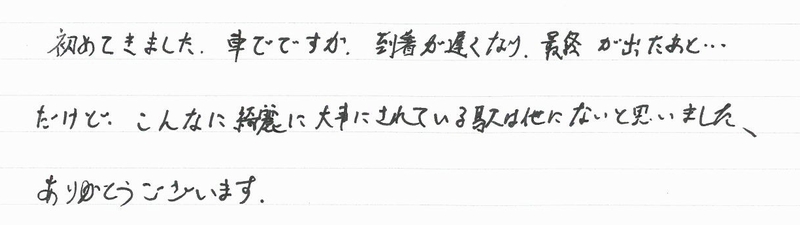 初めてきました. 車でですが. 到着が遅くなり. 最終 が出たあと…
だけど. こんなに綺麗に大事にされている駅は他にないと思いました、
ありがとうございます.